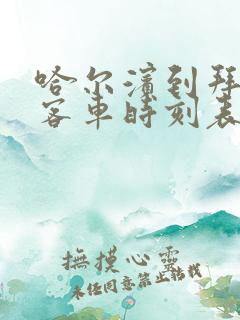 哈尔滨到拜
客车时刻表
撫摸心靈
未经同意禁止转载